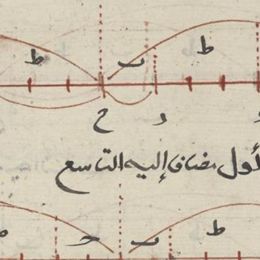 ط ب ط
ح د
لأول مضاف إليه التاسع
ب ط